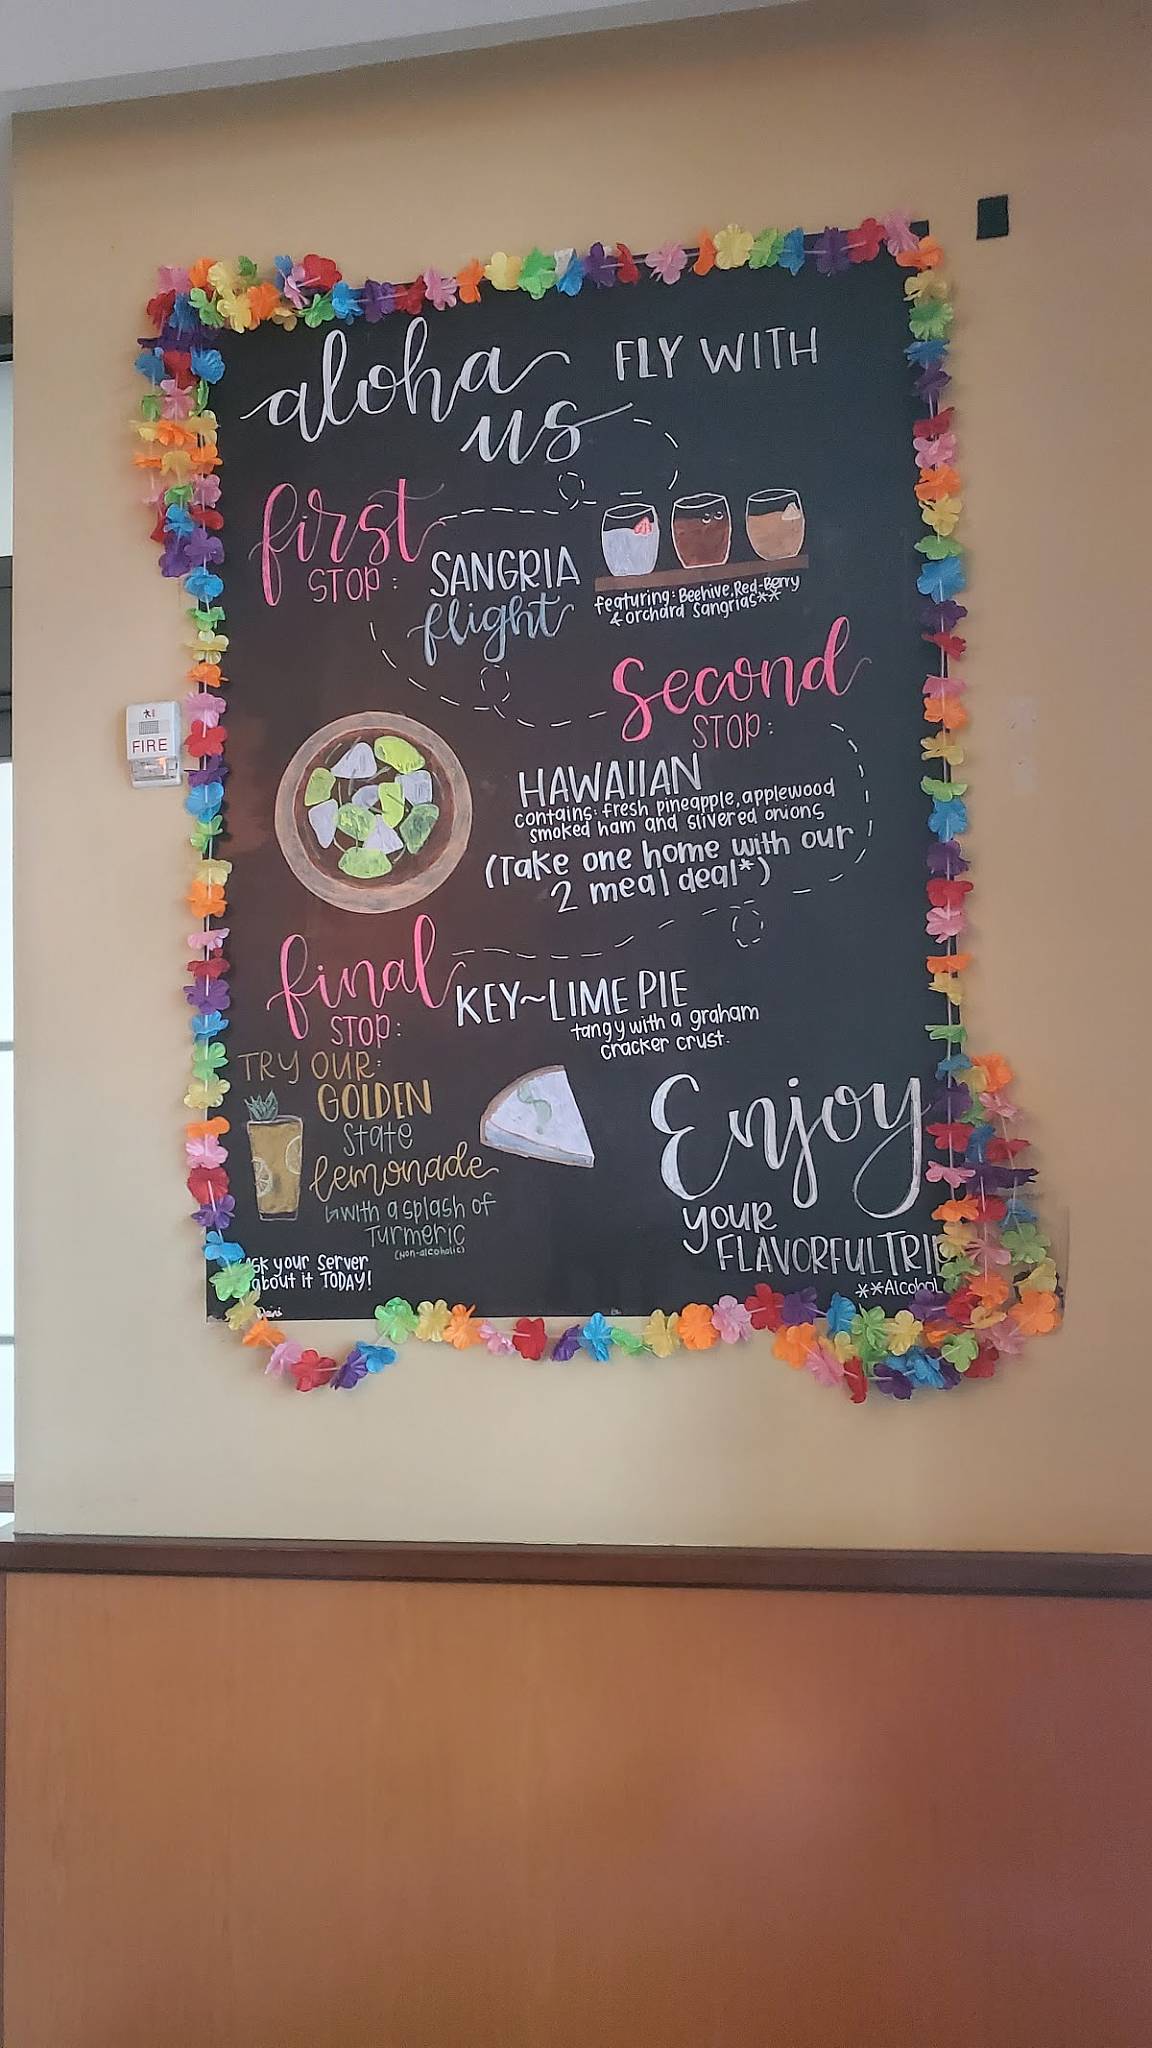 aloha FLY WITH
us
first
STOP:
SANGRIA
flight
featuring: Beehive, Red-Berry
& Orchard Sangrias**
Second
STOP:
HAWAIIAN
contains: fresh pineapple, applewood
smoked ham and slivered onions
(Take one home with our
2 meal deal*)
final
STOP:
KEY~LIME PIE
tangy with a graham
cracker crust.
TRY OUR:
GOLDEN
State
lemonade
↳with a splash of
Turmeric
(Non-alcoholic)
ask your server
about it TODAY!
Enjoy
your
FLAVORFUL TRIP
**Alcohol
FIRE